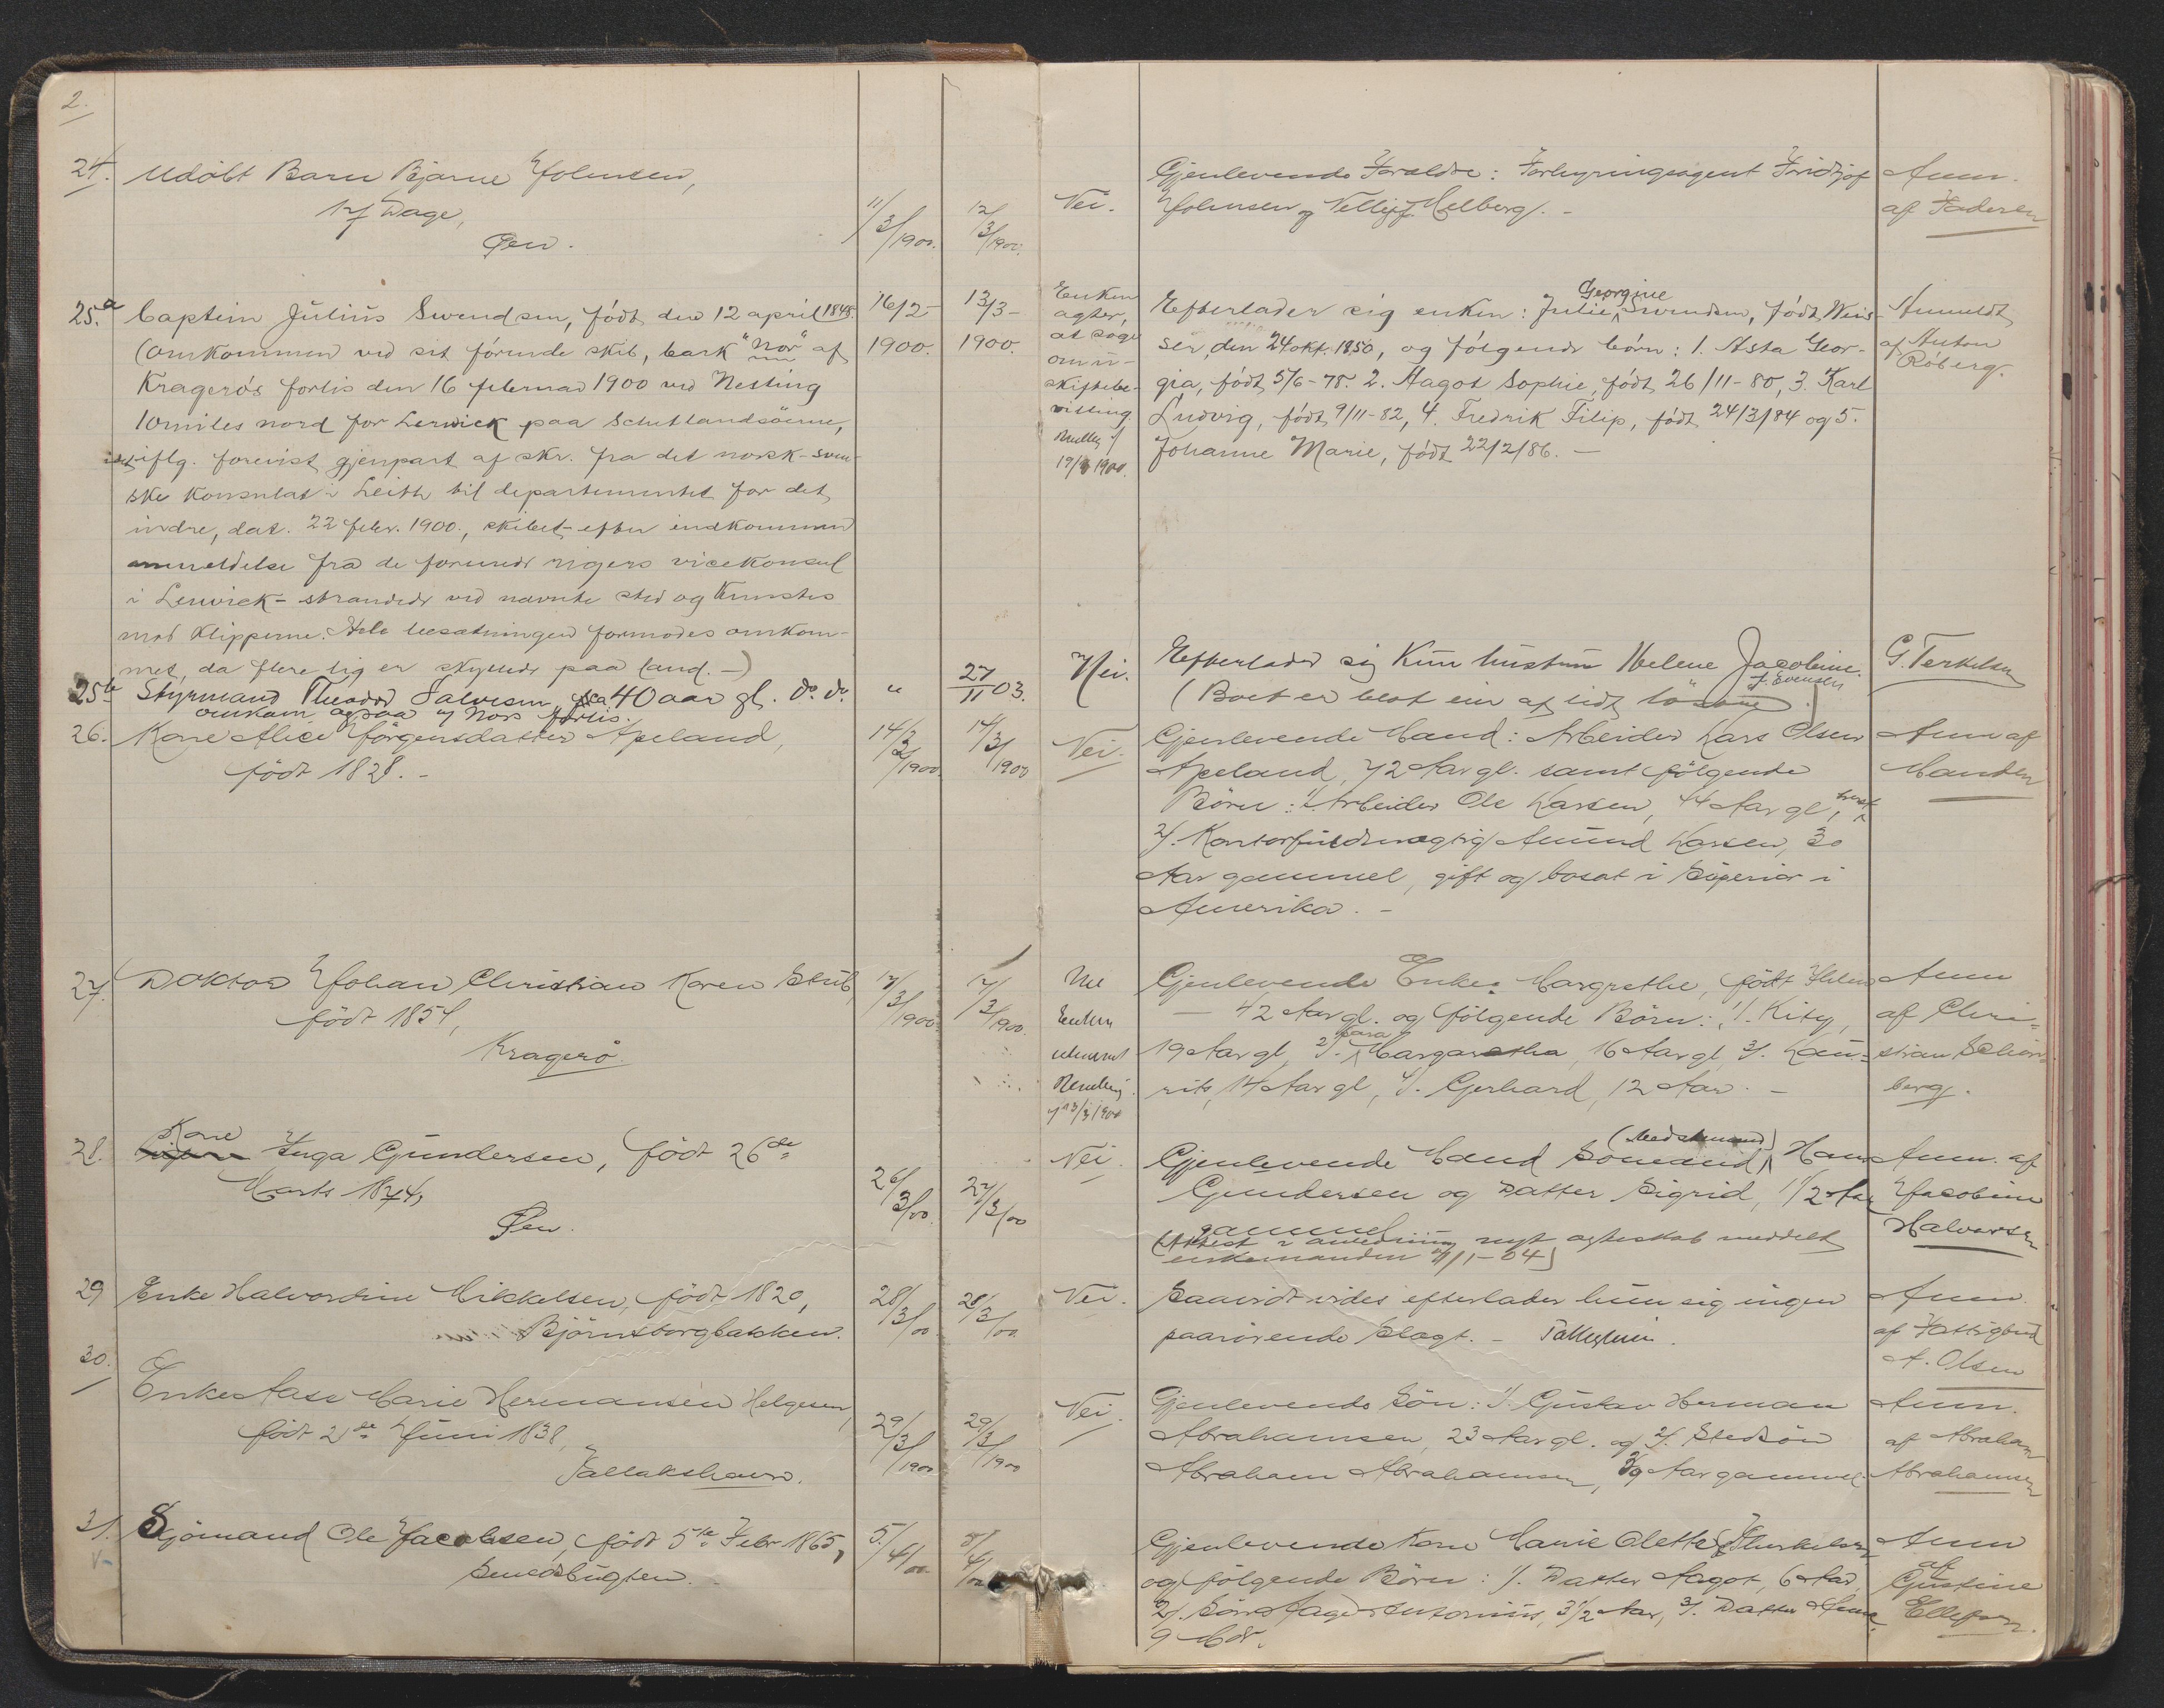 2.
24. Udöbt Barn Bjarne Johnsen,
17 Dage,
Øen.
11/3/1900.
12/3/1900.
Nei.
Gjenlevende Foraldre: Forhyringsagent Fridtjof
Johnsen og Nelly f. Melberg. -
Anm.
af Faderen
25.a Captein Julius Svendsen, född den 12 april 1848.
(omkommen ved sit förende skib, bark "Nor" af
Kragerøs forlis den 16 februar 1900 ved Nesting
10 miles nord for Lerwick paa Schetlandsöerne,
iflg. forevist gjenpart af skr. fra det norsk-sven-
ske konsulat i Leith til departementet for det
indre, dat. 22 febr. 1900., skibet - efter indkommen
anmeldelse fra de forenede rigers vicekonsul
i Lerwick - strandede ved nævnte sted og knustes
mod klipperne. Hele besætningen formodes omkom-
met, da flere lig er skyllede paa land. -)
16/2 -
1900.
13/3 -
1900.
Enken
agter
at søge
om u-
skiftebe-
villing.
Meddelt
19/3 1900.
Efterlader sig enken: Julie Georgine Svendsen, født Weis-
ser, den 24 okt. 1850, og følgende børn: 1. Asta Geor-
gia, født 5/6-78. 2. Aagot Sophie, født 26/11-80, 3. Karl
Ludvig, født 9/11-82, 4. Fredrik Filip, født 24/3/84 og 5.
Johanne Marie, født 22/2/86. -
Anmeldt
af Anton
Röberg.
25b Styrmand Theodor Salvesen, ca 40 aar gl. do. do.
omkom ogsaa v/ Nors forlis.
"
27/11 03.
Nei.
Efterlader sig kun hustru Helene Jacobine
f. Evensen
(Boet er blot ein af lidt lösöre.)
G. Terkelsen
26. Kone Alice Jörgensdatter Apeland,
födt 1828. -
14/3/1900.
14/3/1900
Nei.
Gjenlevende Mand: Arbeider Lars Olsen
Apeland, 72 Aar gl. samt fölgende
Börn: 1/. Arbeider Ole Larsen, 44 Aar gl,
2/. Kontorfuldmægtig Amund Larsen, 30
Aar gammel, gift og bosat i Superior i
Amerika. -
Anm af
Manden
27. Doktor Johan Christian Koren Stub,
födt 1854,
Kragerö.
7/3/1900.
7/3/1900.
Enken
Gjenlevende Enke: Margrethe, födt
- 42 Aar gl. og fölgende Börn: 1/. Kitty,
19 Aar gl, 2/. Margaretha, 16 Aar gl, 3/. Lau-
rits, 14 Aar gl, 4/. Gerhard, 12 Aar. -
Anm
af Chri-
stian Schön-
berg.
28. Kone Inga Gundersen, född 26de
Marts 1874,
Øen.
26/3/00.
27/3/00
Nei.
Gjenlevende Mand Sömand (Bedstemand) Hans
Gundersen og Datter Sigrid, 1 1/2 Aar
gammel
(Attest i anledning nyt ægteskab meddelt
enkemanden 4/1-04)
Anm. af
Jacobine
Halvorsen
29 Enke Halvordine Mikkelsen, född 1820,
Björnsborgbakken.
28/3/00
28/3/00.
Nei.
Saavidt vides efterlader hun sig ingen
paarörende Slægt. -
Anm.
af Fattigbud
A. Olsen
30.
Enke Aase Marie Hermansen Helgesen,
födt 2de Juni 1838,
Tallakshavn.
29/3/1900
29/3/1900
Nei.
Gjenlevende Sön: 1/. Gustav Herman
Abrahamsen, 23 Aar gl. og 2/. Stedsön
Abraham Abrahamsen, 39 Aar gammel
Anm.
af Abraham
Abrahamsen
31. Sjömand Ole Jacobsen, född 5te Febr 1865,
Smedsbugten.
5/4/00.
5/4/00
Gjenlevende Kone Marie Olette f. Therkelsen
og fölgende Börn: 1/. Datter Aagot, 6 Aar,
2/. Sön Aage Antonius, 3 1/2 Aar, 3/. Datter Anna
9 Mdr.
Anm
af
Gustine
Ellefsen.